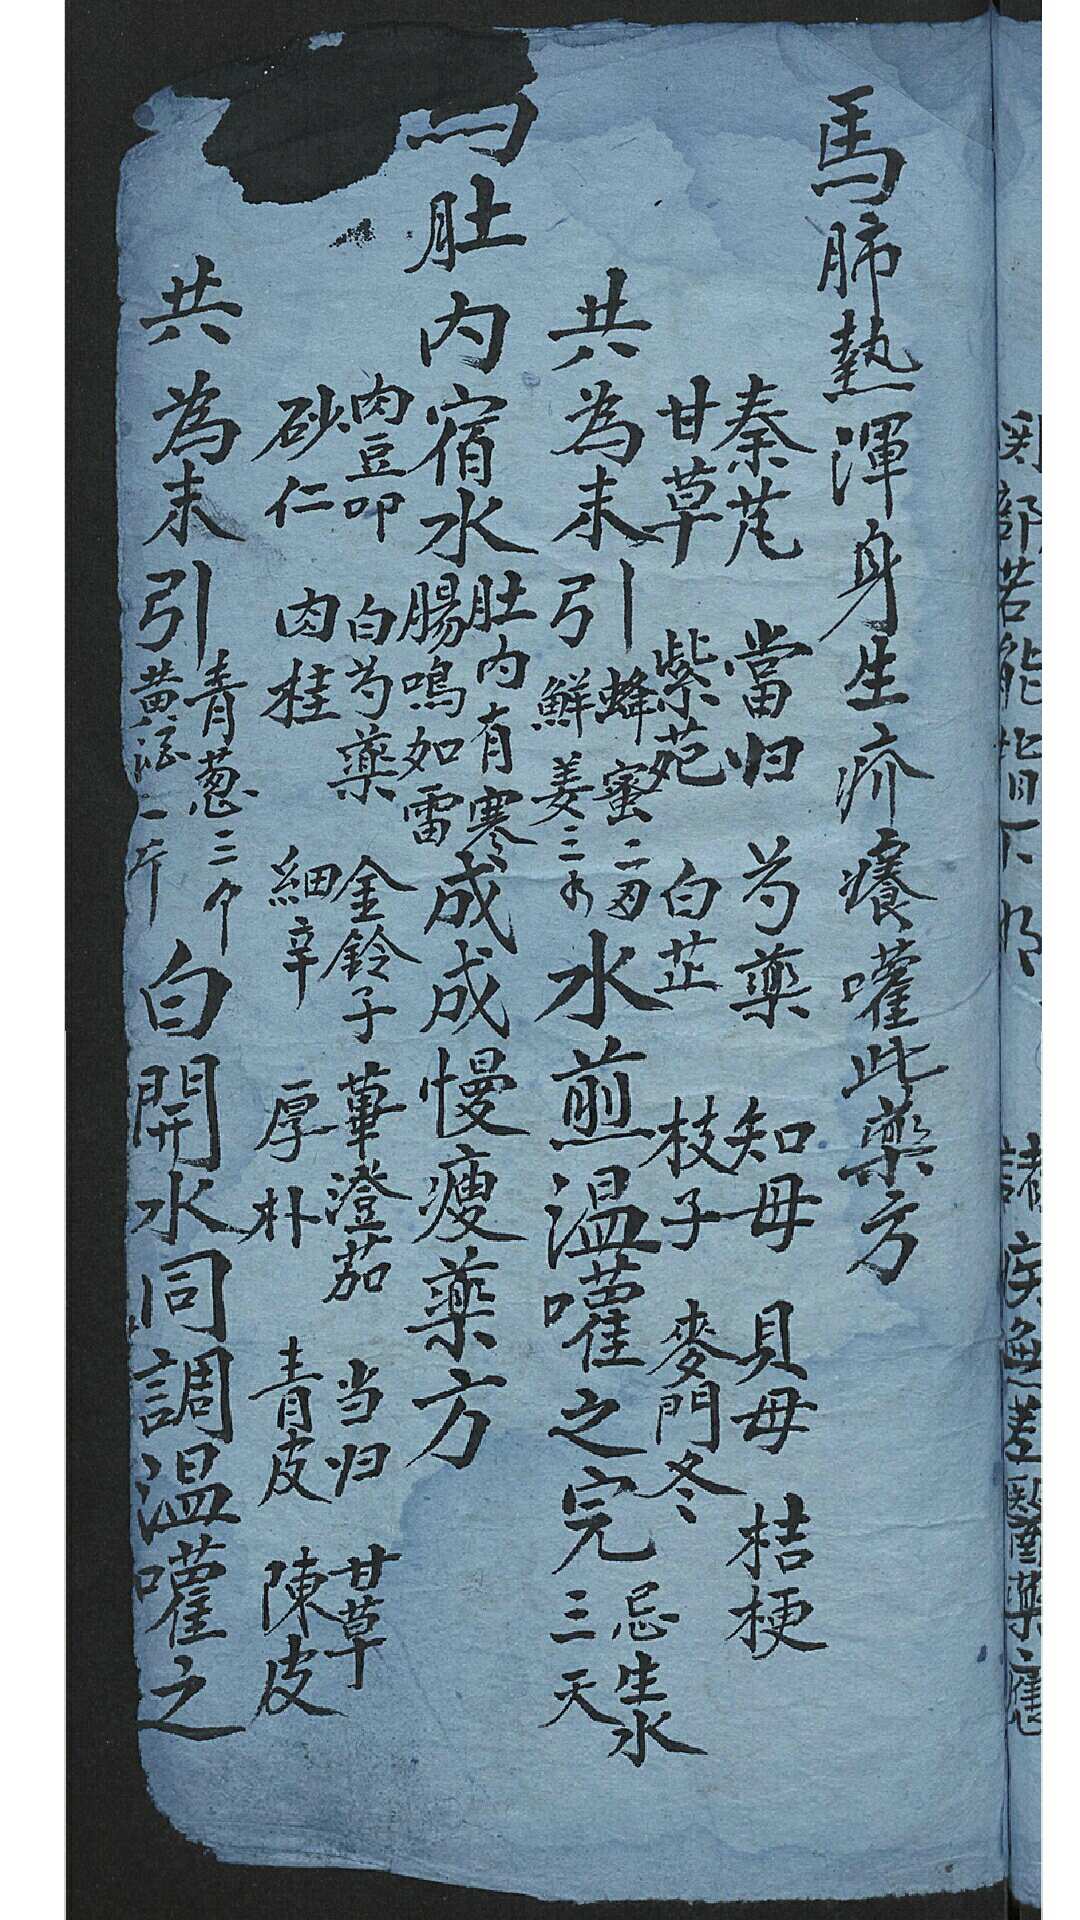 馬肺熱渾身生疥癢嚾此藥方
秦艽 當归 芍藥 知母 貝母 桔梗
甘草 紫苑 白芷 枝子 麥門冬
共為末引 蜂蜜二两 鮮姜三片 水煎温嚾之完 忌生水 三天
馬肚内宿水 肚内有寒 腸鳴如雷 成成慢瘦藥方
肉豆叩 白芍藥 金鈴子 蓽澄茄 当归 甘草
砂仁 肉桂 細辛 厚朴 青皮 陳皮
共為末引 青葱三个 黄酒一斤 白開水同調温嚾之